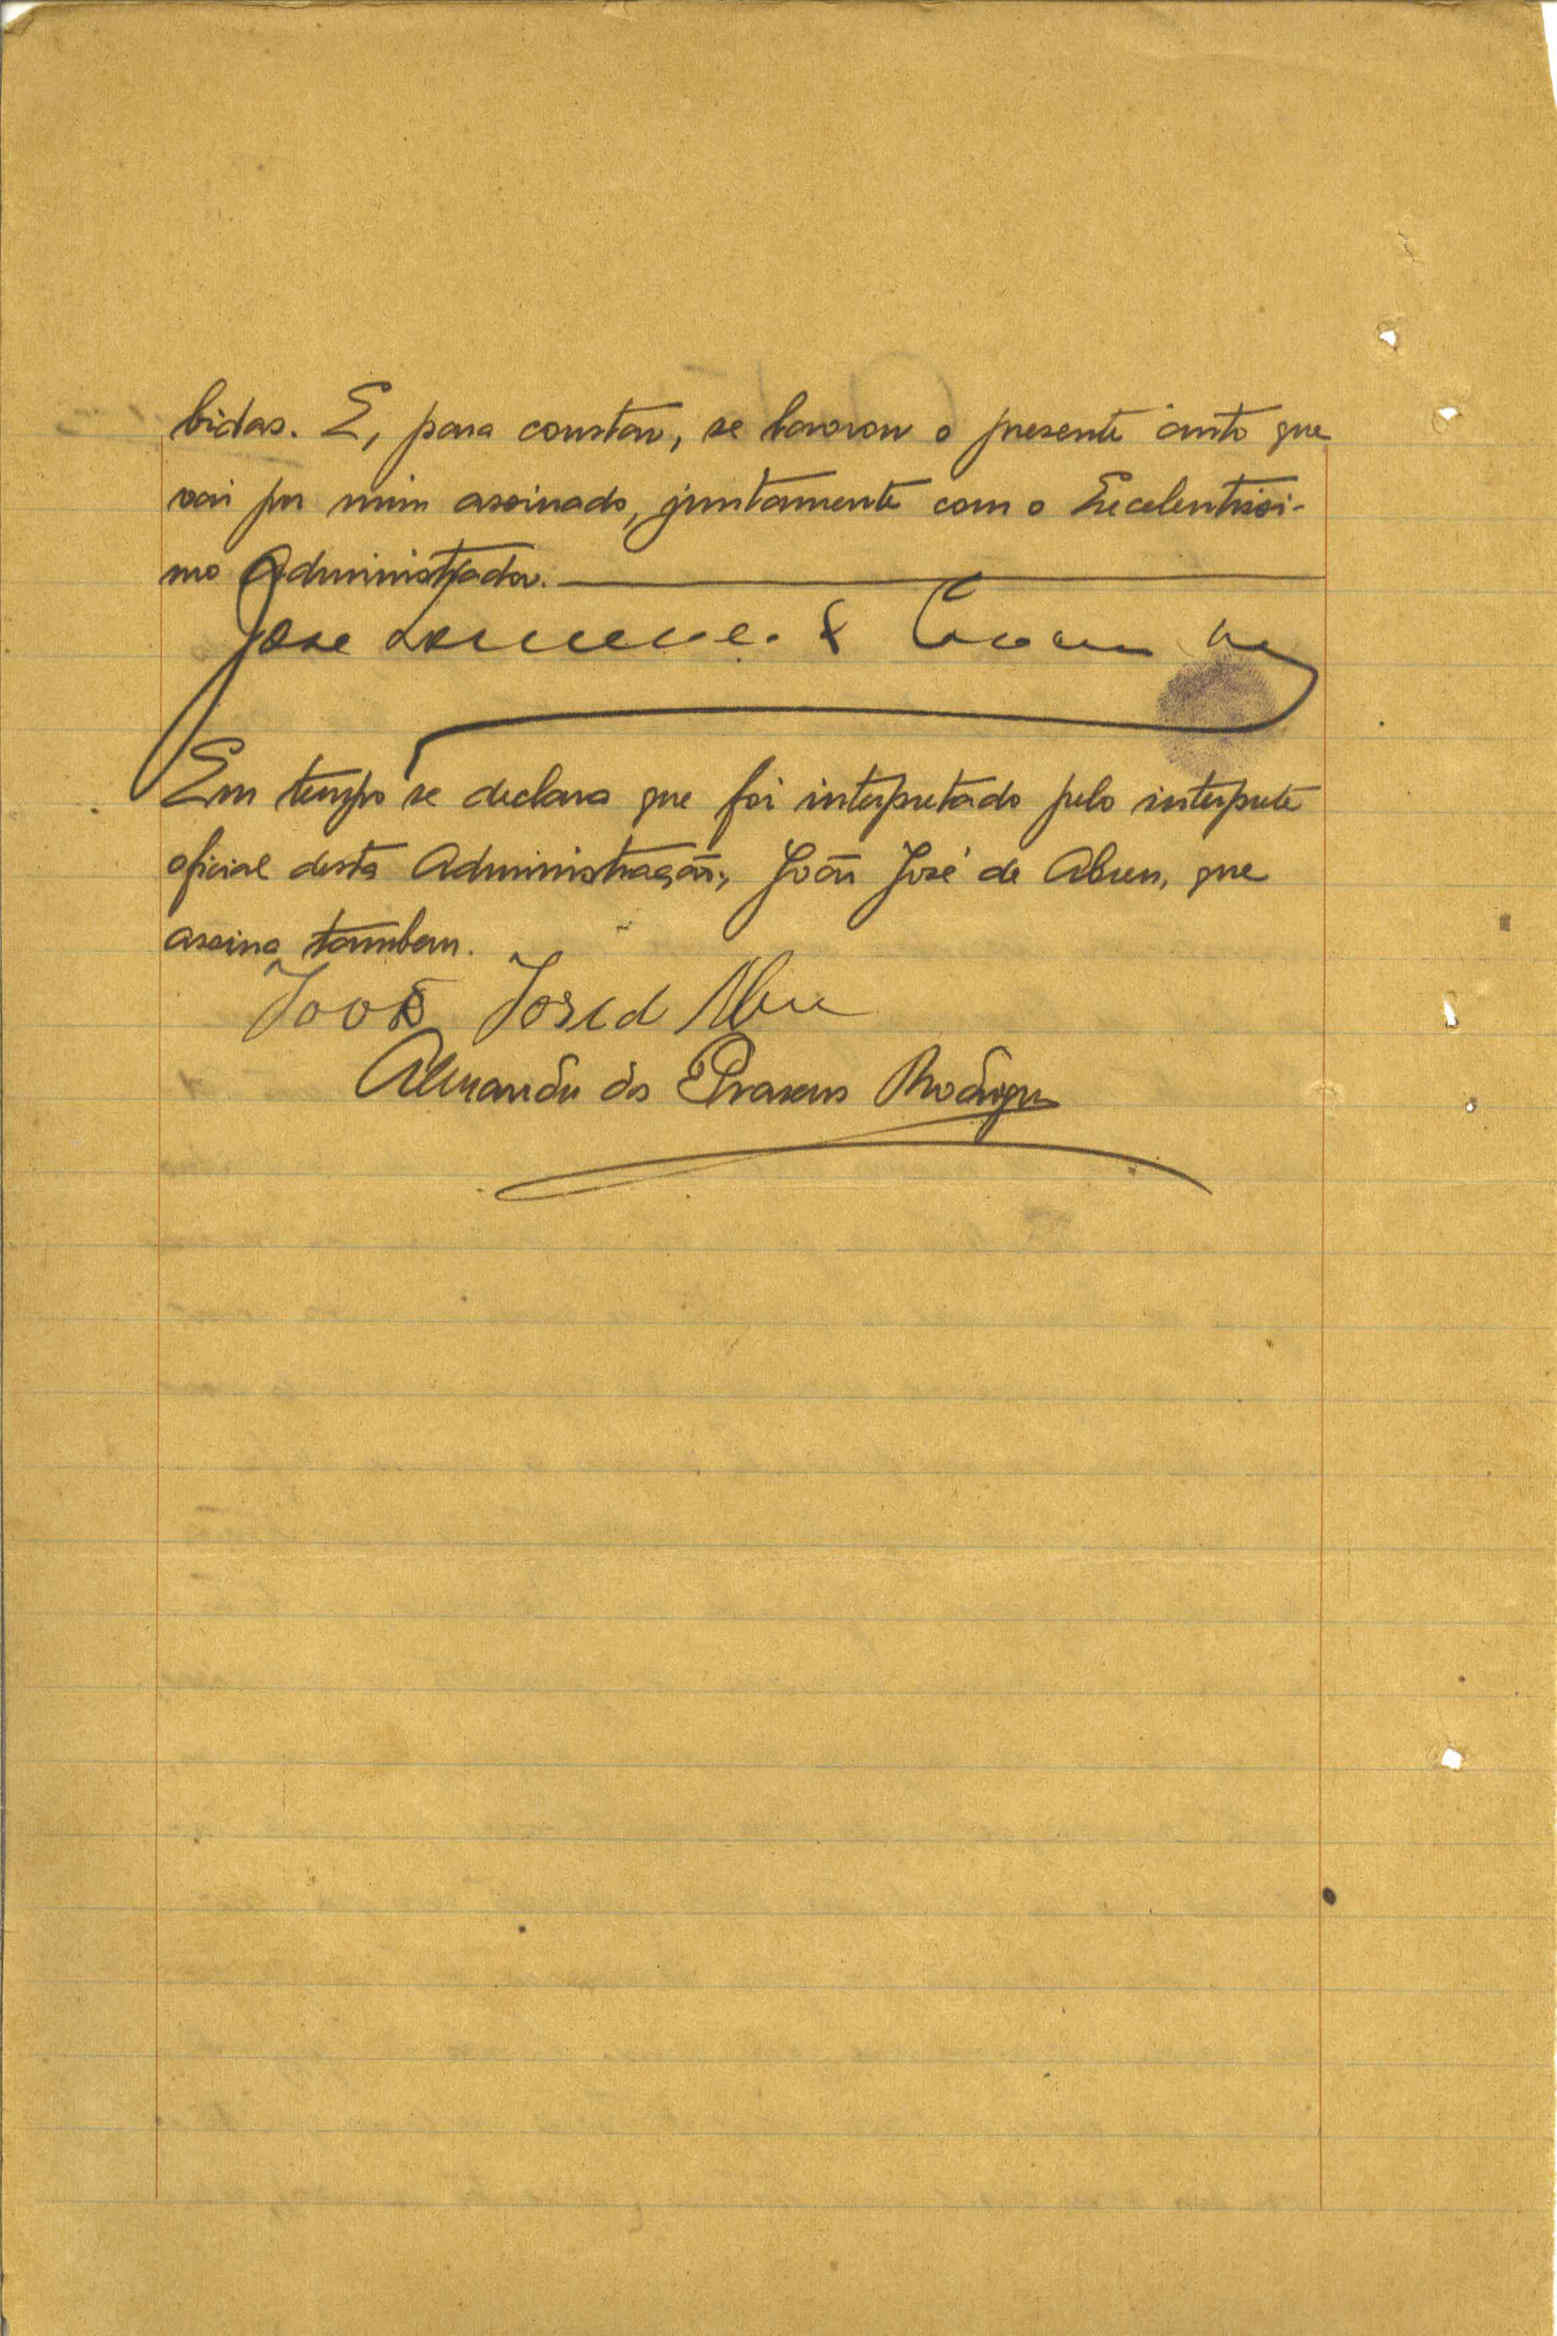 bidas. E, para constar, se lavrou o presente auto que
vai por mim assinado, juntamente com o Excelentissi-
mo Administrador.
José
Em tempo se declara que foi interpretado pelo interprete
oficial desta Administração, João José de Abreu, que
assina tambem.
João José d Abreu
dos Prazeres Rodrigues